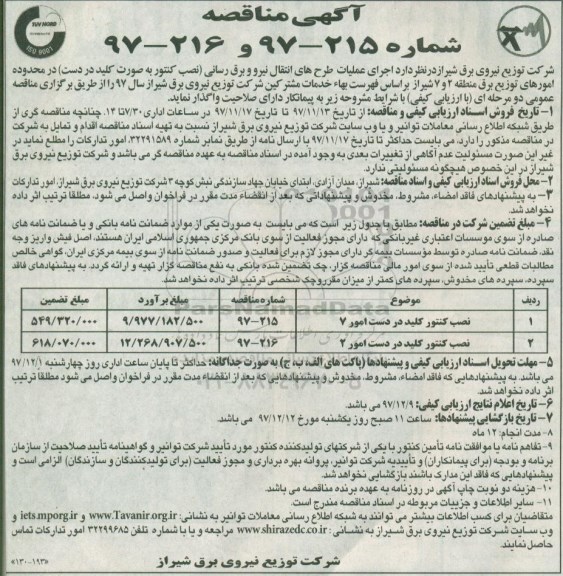 آگهی مناقصه
شماره ۲۱۵-۹۷ و ۲۱۶-۹۷
TUV NORD
ISO 9001
شرکت توزیع نیروی برق شیراز در نظر دارد اجرای عملیات طرح های انتقال نیرو و برق رسانی (نصب کنتور به صورت کلید در دست) در محدوده
امورهای توزیع برق منطقه ۲ و ۷ شیراز بر اساس فهرست بهاء خدمات مشترکین شرکت توزیع نیروی برق شیراز سال ۹۷ را از طریق برگزاری مناقصه
عمومی دو مرحله ای (با ارزیابی کیفی) با شرایط مشروحه زیر به پیمانکار دارای صلاحیت واگذار نماید.
۱- تاریخ فروش اسناد ارزیابی کیفی و مناقصه: از تاریخ ۹۷/۱۱/۱۳ تا ۹۷/۱۱/۱۷ در ساعات اداری ۷/۳۰ تا ۱۴. چنانچه مناقصه گری از
طریق شبکه اطلاع رسانی معاملات توانیر و یا وب سایت شرکت توزیع نیروی برق شیراز نسبت به تهیه اسناد مناقصه اقدام و تمایل به شرکت
در مناقصه مذکور را دارد، می بایست حداکثر تا تاریخ ۹۷/۱۱/۱۷ با ارسال نامه از طریق نمابر شماره ۳۲۲۹۱۵۸۹ امور تدارکات را مطلع نماید در
غیر این صورت مسئولیت عدم آگاهی از تغییرات بعدی به وجود آمده در اسناد مناقصه به عهده مناقصه گر می باشد و شرکت توزیع نیروی برق
شیراز در این خصوص هیچگونه مسئولیتی ندارد.
۲- محل فروش اسناد ارزیابی کیفی و اسناد مناقصه: شیراز، میدان آزادی، ابتدای خیابان جهاد سازندگی نبش کوچه ۳ شرکت توزیع نیروی برق شیراز، امور تدارکات
۳- به پیشنهادهای فاقد امضاء، مشروط، مخدوش و پیشنهاداتی که بعد از انقضاء مدت مقرر در فراخوان واصل می شود، مطلقا ترتیب اثر داده
نخواهد شد.
۴- مبلغ تضمین شرکت در مناقصه: مطابق با جدول زیر است که می بایست به صورت یکی از موارد ضمانت نامه بانکی و یا ضمانت نامه های
صادره از سوی موسسات اعتباری غیربانکی که دارای مجوز فعالیت از سوی بانک مرکزی جمهوری اسلامی ایران هستند، اصل فیش واریز وجه
نقد، ضمانت نامه صادره توسط مؤسسات بیمه گر دارای مجوز لازم برای فعالیت و صدور ضمانت نامه از سوی بیمه مرکزی ایران، گواهی خالص
مطالبات قطعی تأیید شده از سوی امور مالی مناقصه گزار، چک تضمین شده بانکی به نفع مناقصه گزار تهیه و ارائه گردد. به پیشنهادهای فاقد
سپرده، سپرده های مخدوش، سپرده های کمتر از میزان مقرر و چک شخصی ترتیب اثر داده نخواهد شد.
ردیف موضوع شماره مناقصه مبلغ برآورد مبلغ تضمین
۱ نصب کنتور کلید در دست امور ۷ ۹۷-۲۱۵ ۹/۹۷۷/۱۸۲/۵۰۰ ۵۴۹/۳۲۰/۰۰۰
۲ نصب کنتور کلید در دست امور ۲ ۹۷-۲۱۶ ۱۲/۲۶۸/۹۰۷/۵۰۰ ۶۱۸/۰۷۰/۰۰۰
۵- مهلت تحویل اسناد ارزیابی کیفی و پیشنهادها (پاکت های الف، ب، ج) به صورت جداگانه: حداکثر تا پایان ساعت اداری روز چهارشنبه ۹۷/۱۲/۱
می باشد. به پیشنهادهایی که فاقد امضاء، مشروط، مخدوش و پیشنهادهایی که بعد از انقضاء مدت مقرر در فراخوان واصل می شود مطلقا ترتیب
اثر داده نخواهد شد.
۶- تاریخ اعلام نتایج ارزیابی کیفی: ۹۷/۱۲/۹ می باشد.
۷- تاریخ بازگشایی پیشنهادها: ساعت ۱۱ صبح روز یکشنبه مورخ ۹۷/۱۲/۱۲ می باشد.
۸- مدت انجام: ۱۲ ماه
۹- تفاهم نامه یا موافقت نامه تأمین کنتور با یکی از شرکتهای تولیدکننده کنتور مورد تأیید شرکت توانیر و گواهینامه تأیید صلاحیت از سازمان
برنامه و بودجه (برای پیمانکاران) و تأییدیه شرکت توانیر، پروانه بهره برداری و مجوز فعالیت (برای تولیدکنندگان و سازندگان) الزامی است و
پیشنهادهایی که فاقد این مدارک باشند بازگشایی نخواهد شد.
۱۰- هزینه دو نوبت چاپ آگهی در روزنامه به عهده برنده مناقصه می باشد.
۱۱- سایر اطلاعات و جزییات مربوطه در اسناد مناقصه مندرج است.
متقاضیان برای کسب اطلاعات بیشتر می توانند به شبکه اطلاع رسانی معاملات توانیر به نشانی: www.Tavanir.org.ir و iets.mporg.ir و
وب سایت شرکت توزیع نیروی برق شیراز به نشانی: www.shirazedc.co.ir مراجعه و یا با شماره تلفن ۳۲۲۹۹۶۸۵ امور تدارکات تماس
حاصل نمایند.
شرکت توزیع نیروی برق شیراز
«۱۳۰-۱۹۳»